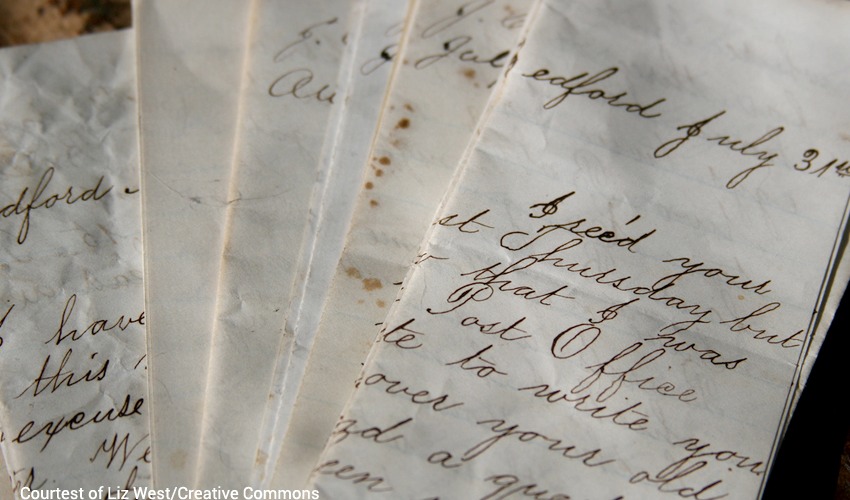 dford.
I have
this
excuse
We
J.
Au
J.
Jul
edford July 31st
I rec'd your
st Thursday but
that I was
Post Office
te to write you
over your old
zd a que
een
Courtesy of Liz West/Creative Commons